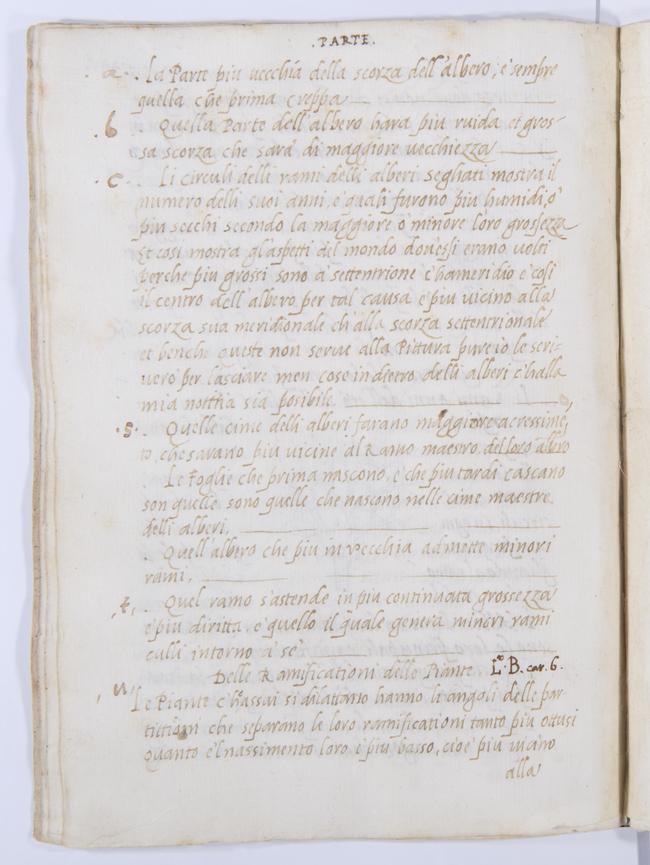 . PARTE .
. a . . La Parte più vecchia della scorza dell'albero, è sempre
quella che prima creppa
. b . Quella Parte dell'albero harà più ruida et gros-
sa scorza che sarà di maggiore vecchiezza
. c . . Li circuli delli rami delli alberi segbati mostra il
numero delli suoi anni, e quali furono più humidi, ò
più secchi secondo la maggiore ò minore loro grossezza
Et così mostra gl'aspetti del mondo dov'essi erano volti
perche più grossi sono à settentrione ch'a meridio e così
il centro dell'albero per tal causa è più vicino alla
scorza sua meridionale ch'alla scorza settentrionale
et benche queste non serve alla Pittura pure io le scri-
verò per lasciare men cose indietro delli alberi ch'alla
mia notitia sia posibile
. s . . Quelle cime delli alberi farano maggiore acressime,
to, che sarano più vicine al Ramo maestro del loro albro
Le Foglie che prima nascono, e che più tardi cascano
son quelle sono quelle che nascono nelle cime maestre
delli alberi,
. Quell'albero che più in vecchia ad mette minori
rami,
, t, . Quel ramo s'astende in più continuata grossezza
e più diritta, e quello il quale genera minori rami
culli intorno a sè
Delle Ramificationi delle Piante L.º B. car. 6.
, u, Le Piante ch'assai si dilattano hanno li angoli delle par
tittioni che separano le loro ramificationi tanto più otusi
quanto e'l nassimento loro è più basso, cioè più vicino
alla